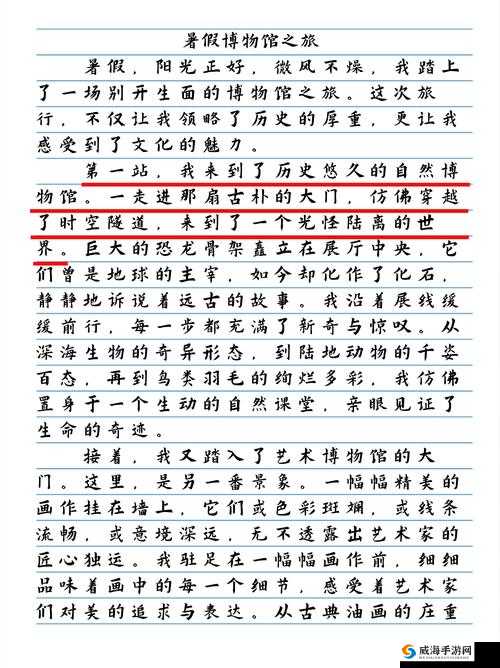 暑假博物馆之旅
暑假，阳光正好，微风不燥，我踏上
了一场别开生面的博物馆之旅。这次旅
行，不仅让我领略了历史的厚重，更让我
感受到了文化的魅力。
第一站，我来到了历史悠久的自然博
物馆。一走进那扇古朴的大门，仿佛穿越
了时空隧道，来到了一个光怪陆离的世
界。巨大的恐龙骨架矗立在展厅中央，它
们曾是地球的主宰，如今却化作了化石，
静静地诉说着远古的故事。我沿着展线缓
缓前行，每一步都充满了新奇与惊叹。从
深海生物的奇异形态，到陆地动物的千姿
百态，再到鸟类羽毛的绚烂多彩，我仿佛
置身于一个生动的自然课堂，亲眼见证了
生命的奇迹。
接着，我又踏入了艺术博物馆的大
门。这里，是另一番景象。一幅幅精美的
画作挂在墙上，它们或色彩斑斓，或线条
流畅，或意境深远，无不透露出艺术家的
匠心独运。我驻足在一幅幅画作前，细细
品味着画中的每一个细节，感受着艺术家
们对美的追求与表达。从古典油画的庄重
威海手游网